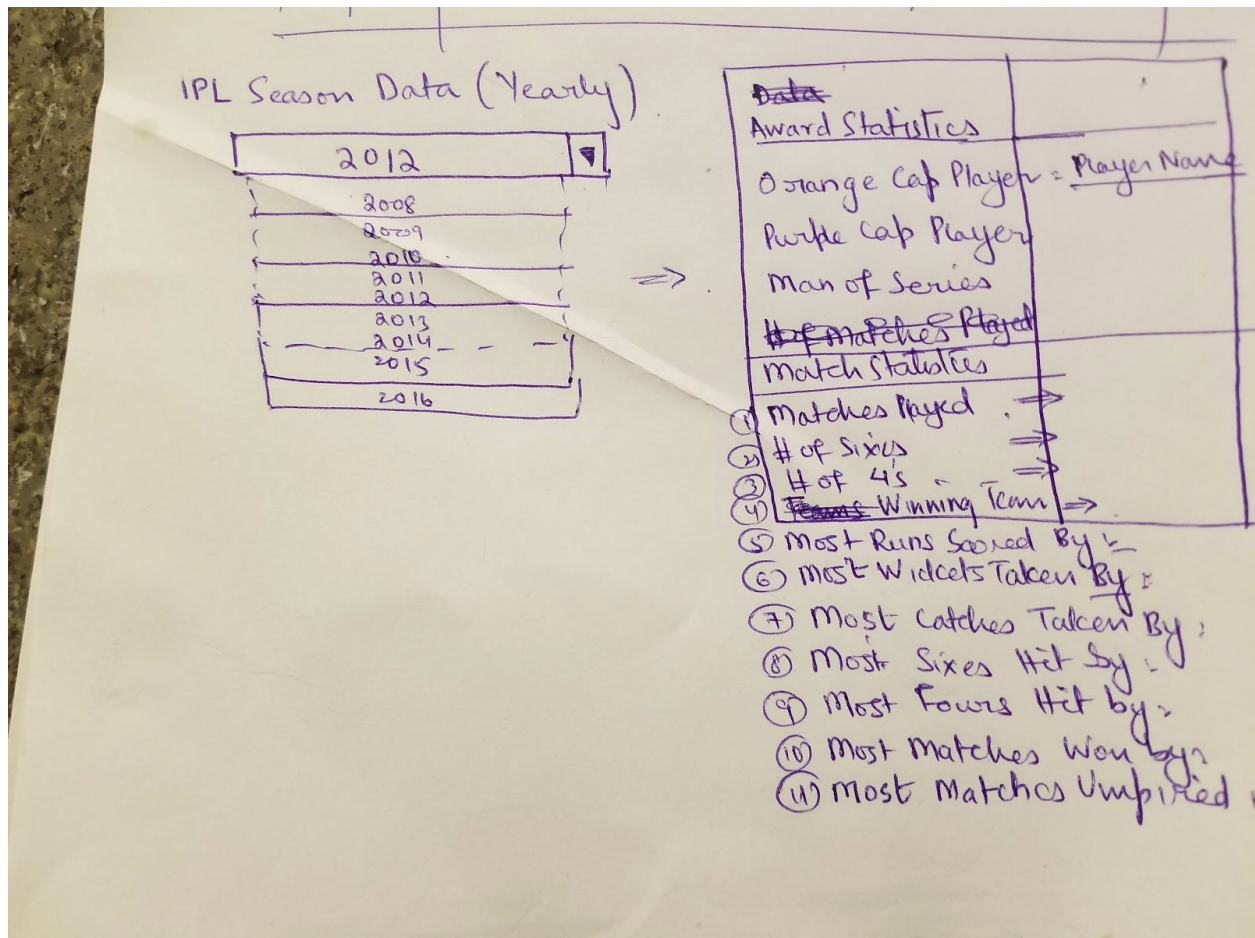 IPL Season Data (Yearly)
2012
2008
2009
2010
2011
2012
2013
2014
2015
2016
Data
Award Statistics
Orange Cap Player = Player Name
Purple Cap Player
Man of Series
# of Matches Played
Match Statistics
① Matches Played
② # of Sixes
③ # of 4's
④ Teams Winning Team
⑤ Most Runs Scored By :
⑥ Most Wickets Taken By :
⑦ Most Catches Taken By :
⑧ Most Sixes Hit by :
⑨ Most Fours Hit by :
⑩ Most Matches Won by :
⑪ Most Matches Umpired